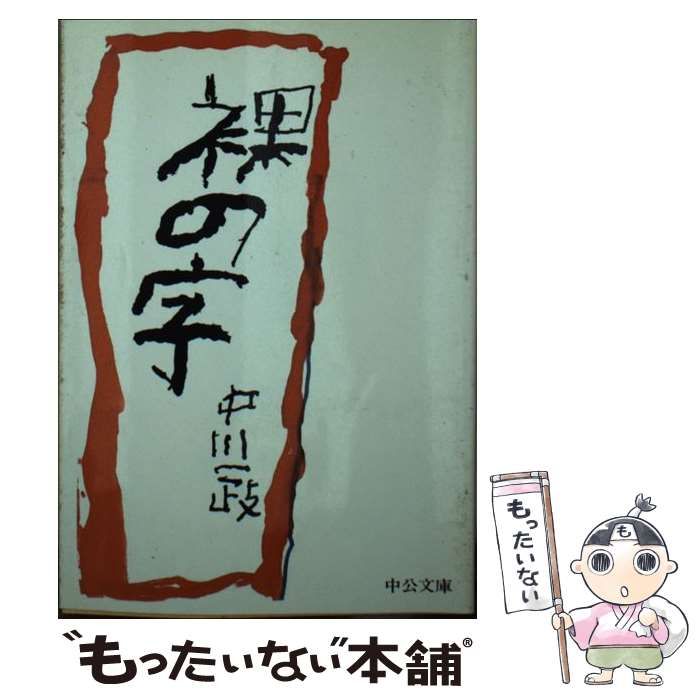 裸の字
中川一政
中公文庫
もったいない
も
"もったいない"本舗®